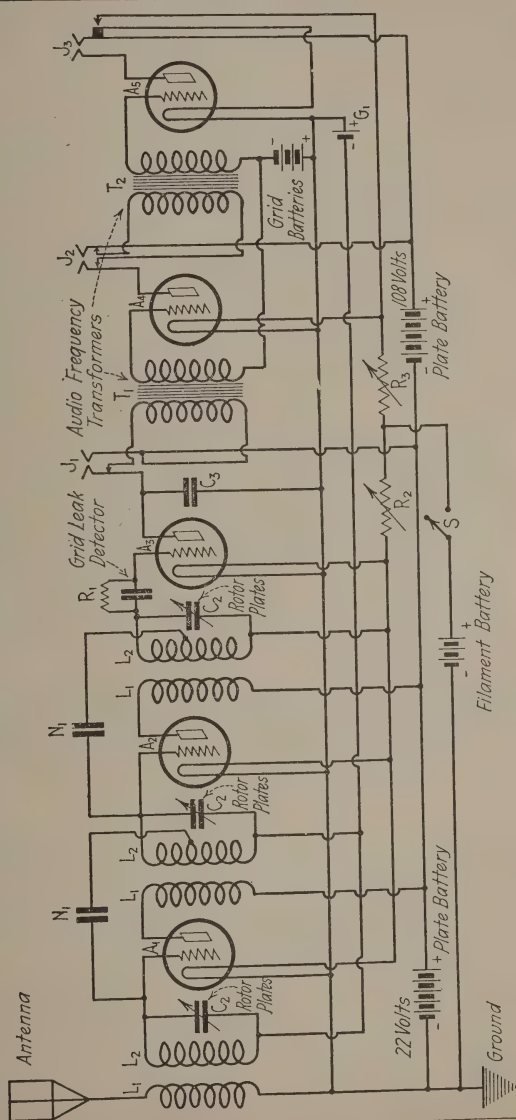 Antenna
L1
L2
C2
Rotor
Plates
A1
N1
L1
L2
C2
Rotor
Plates
A2
N1
L1
L2
C2
Rotor
Plates
R1
Grid Leak
Detector
A3
C3
J1
Audio Frequency
Transformers
T1
A4
J2
T2
Grid
Batteries
- +
A5
J3
- + G1
Ground
22 Volts
- + Plate Battery
Filament Battery
- +
S
R2
R3
108 Volts
- +
Plate Battery